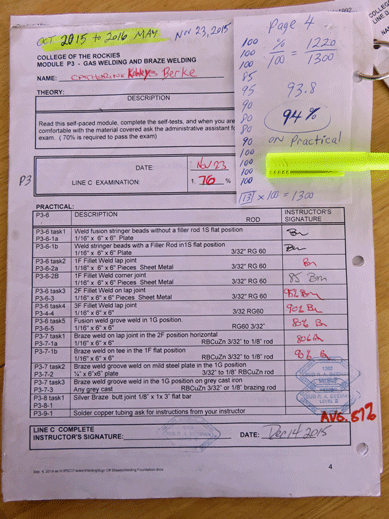 OCT 2015 to 2016 MAY
NOV 23, 2015
COLLEGE OF THE ROCKIES
MODULE P3 - GAS WELDING AND BRAZE WELDING
NAME: Berke
Page 4
% = 1220
100 1300
93.8
94%
ON Practical
100
100
100
85
95
90
90
80
80
90
100
100
100
13 x 100 = 1300
THEORY:
DESCRIPTION
Read this self-paced module, complete the self-tests, and when you are
comfortable with the material covered ask the administrative assistant for
exam. ( 70% is required to pass the exam)
P3
DATE: Nov 23
LINE C EXAMINATION: 1. 76 %
PRACTICAL:
P3-6 DESCRIPTION ROD INSTRUCTOR'S SIGNATURE
P3-6 task1 Weld fusion stringer beads without a filler rod 1S flat position
P3-6-1a 1/16" x 6" x 6" Plate
P3-6-1b Weld stringer beads with a Filler Rod in1S flat position
1/16" x 6" x 6" Plate 3/32" RG 60
P3-6 task2 1F Fillet Weld lap joint
P3-6-2a 1/16" x 6" x 6" Pieces Sheet Metal 3/32" RG 60
P3-6-2B 1F Fillet Weld corner joint
1/16" x 6" x 6" Pieces Sheet Metal 3/32" RG 60 85
P3-6 task3 2F Fillet Weld on lap joint
P3-6-3 1/16" x 6" x 6" Pieces Sheet Metal 3/32" RG 60 95%
P3-6 task4 3F Fillet Weld lap joint
P3-4-4 1/16" x 6" x 6" 3/32 RG60 90%
P3-6 task5 Fusion weld grove weld in 1G position.
P3-6-5 1/16" x 6" x 6" RG60 3/32" 80%
P3-7 task1 Braze weld on lap joint in the 2F position horizontal
P3-7-1a 1/16" x 6" x 6" RBCuZn 3/32" to 1/8" rod 80%
P3-7-1b Braze weld on tee in the 1F flat position
1/16" x 6" x 6" RBCuZn 3/32" to 1/8" rod 90%
P3-7 task2 Braze weld groove weld on mild steel plate in the 1G position
P3-7-2 ¼" x 6"x6" plate 3/32" to 1/8" RBCuZn rod
P3-7 task3 Braze weld groove weld in the 1G position on grey cast iron
P3-7-3 Any grey cast RBCuZn 3/32" or 1/8" brazing rod
P3-8 task1 Silver Braze butt joint 1/8" x 1x 3" flat bar
P3-8-1
P3-9-1 Solder copper tubing ask for instructions from your instructor
AVG.
LINE C COMPLETE
INSTRUCTOR'S SIGNATURE: DATE: Dec 14 2015
4